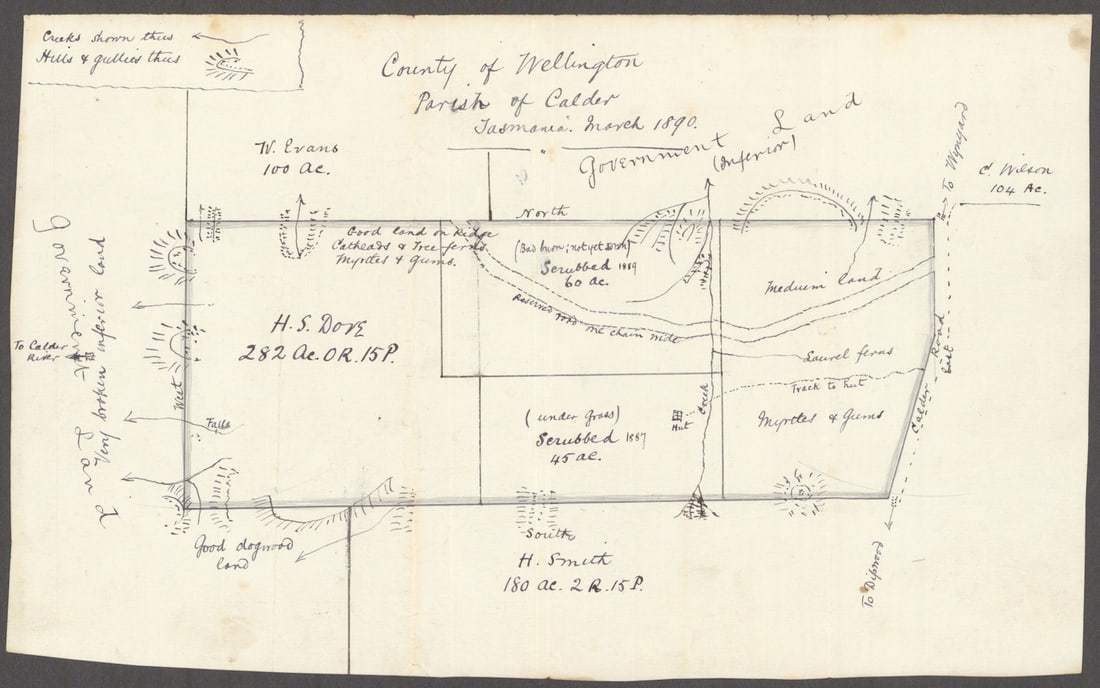 Creeks shown thus
Hills & gullies thus
County of Wellington
Parish of Calder
Tasmania. March 1890.
W. Evans
100 Ac.
Government Land
(Inferior)
To Wynyard
C. Wilson
104 Ac.
North
Good land on Ridge
Catheads & Tree ferns.
Myrtles & Gums.
(Bad burn; not yet sown)
Scrubbed 1889
60 Ac.
Medium land
Reserved road one chain wide
Government Land
Very broken inferior land
To Calder
River
West
H. S. DOVE
282 Ac. 0R. 15P.
Laurel ferns
Track to hut
Calder Road
East
Falls
(under Grass)
Scrubbed 1887
45 ac.
Hut
Creek
Myrtles & Gums
Good dogwood
land
South
H. Smith
180 Ac. 2 R. 15 P.
To Dipwood